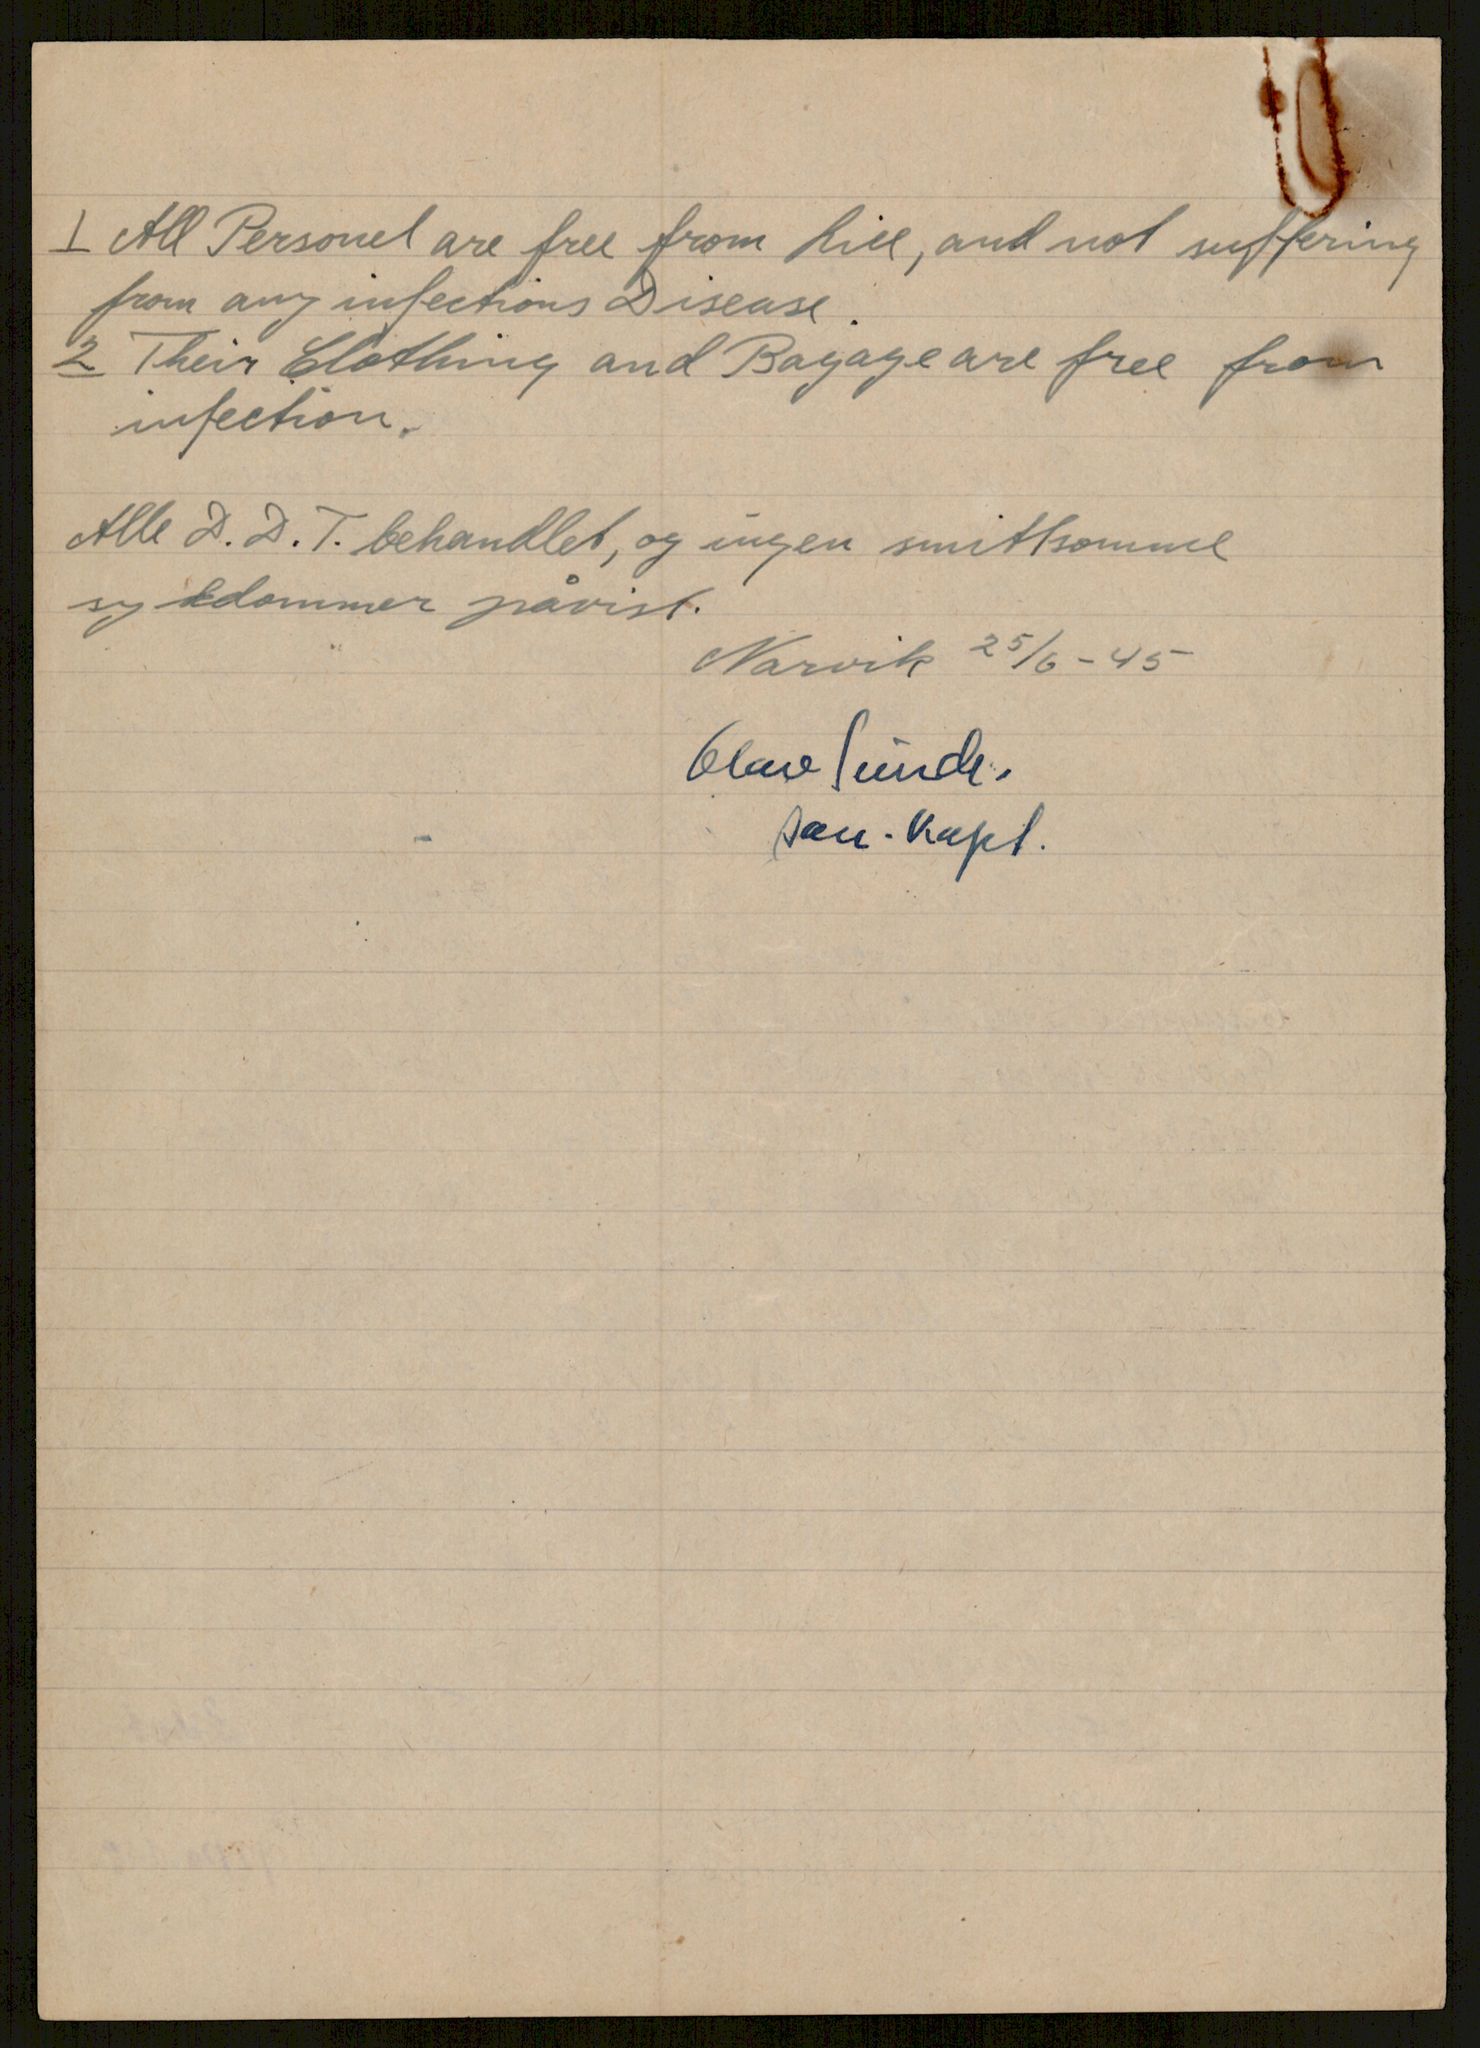 1 All Personel are free from lice, and not suffering
from any infections Disease.
2 Their Clothing and Bagage are free from
infection.
Alle D.D.T. behandlet, og ingen smittsomme
sykdommer påvist.
Narvik 25/6-45
Olav Sunde.
san-kapt.